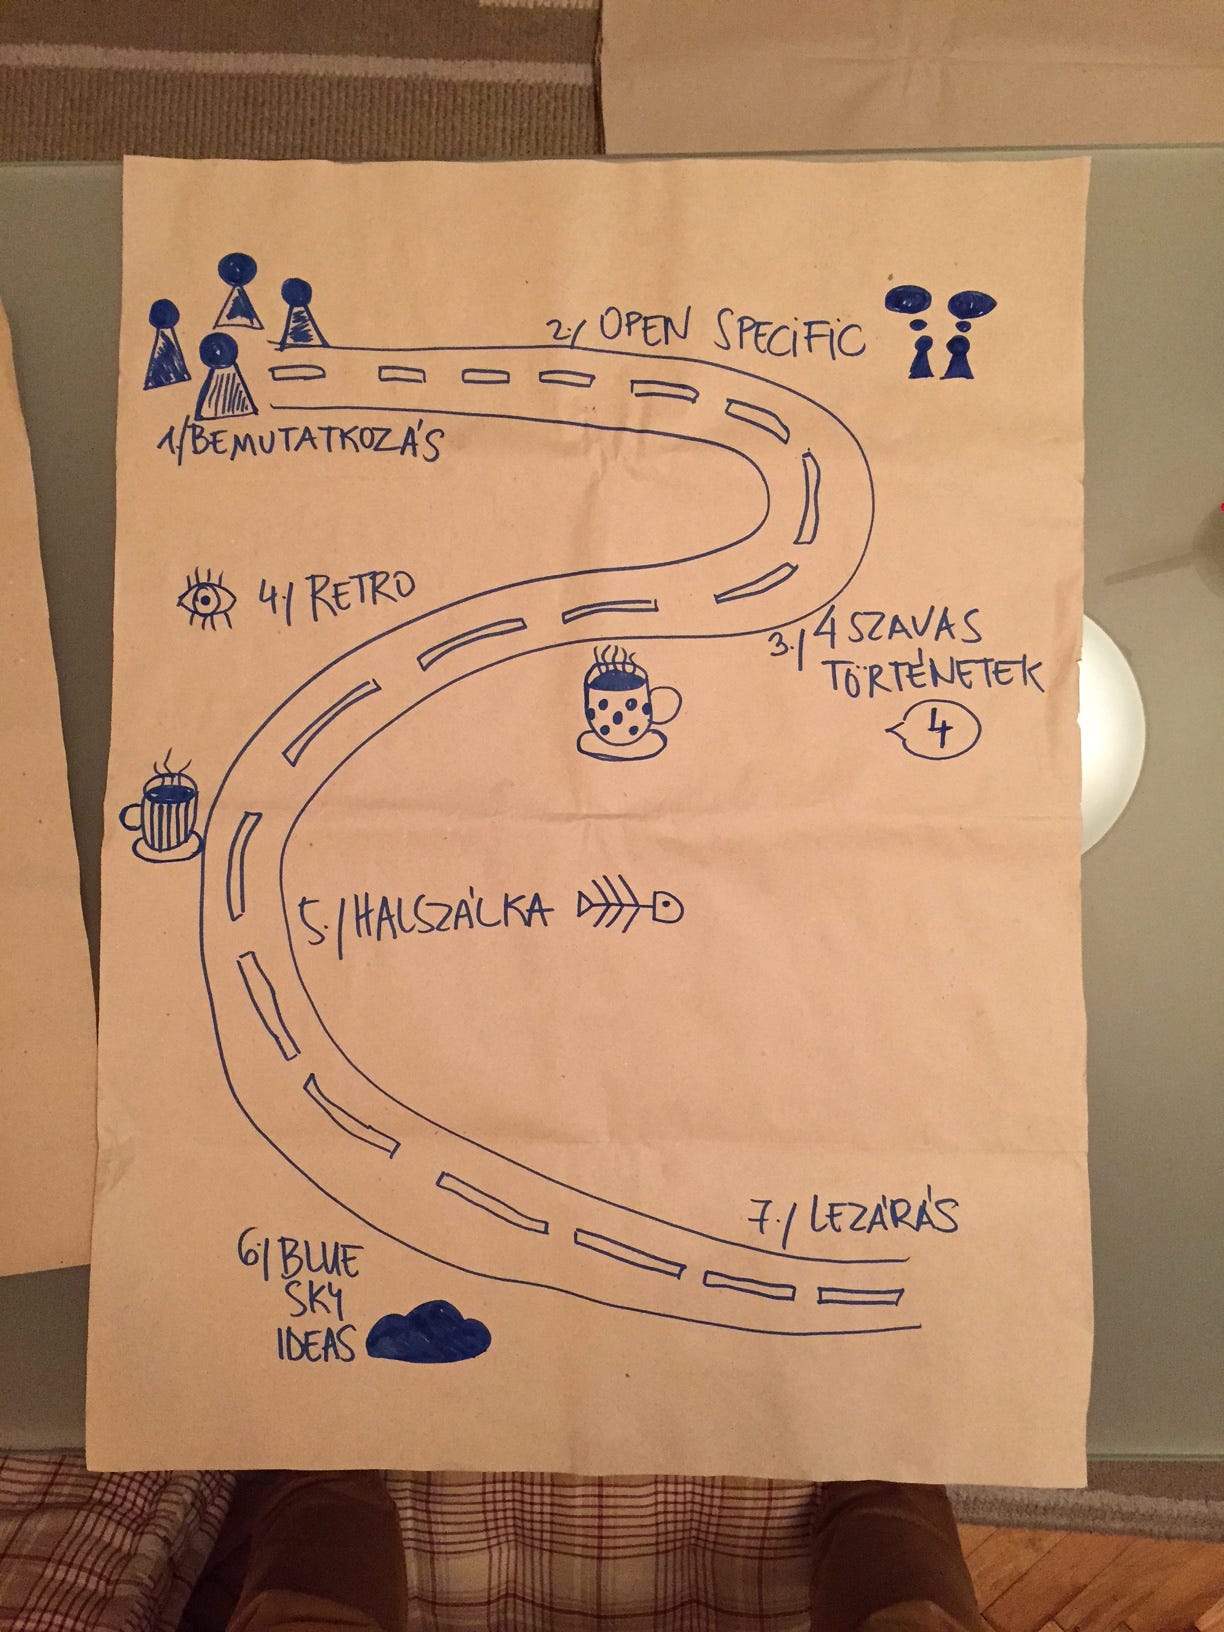 1./BEMUTATKOZÁS
2./ OPEN SPECIFIC
3./ 4 SZAVAS
TÖRTÉNETEK
4
4./ RETRO
5./HALSZÁLKA
6./BLUE
SKY
IDEAS
7./ LEZÁRÁS